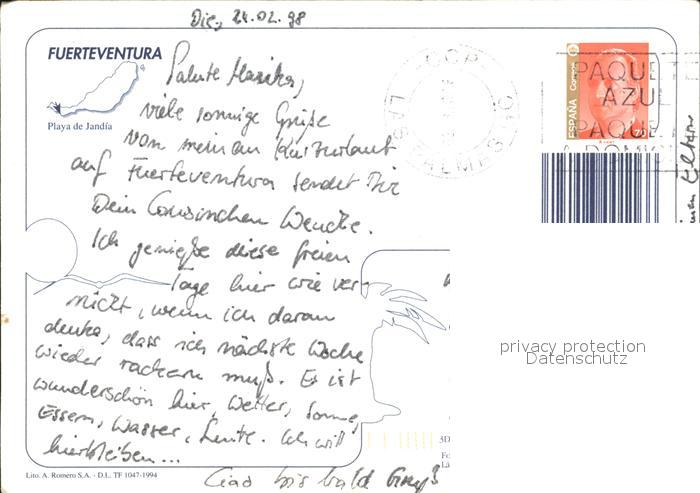 Die, 24.02.98
FUERTEVENTURA
Playa de Jandía
viele sonnige Grüße
von meinem Kurzurlaub
auf Fuerteventura sendet Dir
Dein Cousinchen Wencke.
Ich genieße diese freien
Tage hier wie ver-
rückt, wenn ich daran
denke, dass ich nächste Woche
wieder rackern muß. Es ist
wunderschön hier, Wetter, Sonne,
Essen, Wasser, Leute. Ich will
hierbleiben...
Ciao bis bald
Lito. A. Romero S.A. - D.L. TF 1047-1994
CCP
LAS PALMAS
ESPAÑA Correos
70
PAQUETE
AZUL
PAQUE
A DOMIC
Eltern
3D
Fo
Lá
privacy protection
Datenschutz